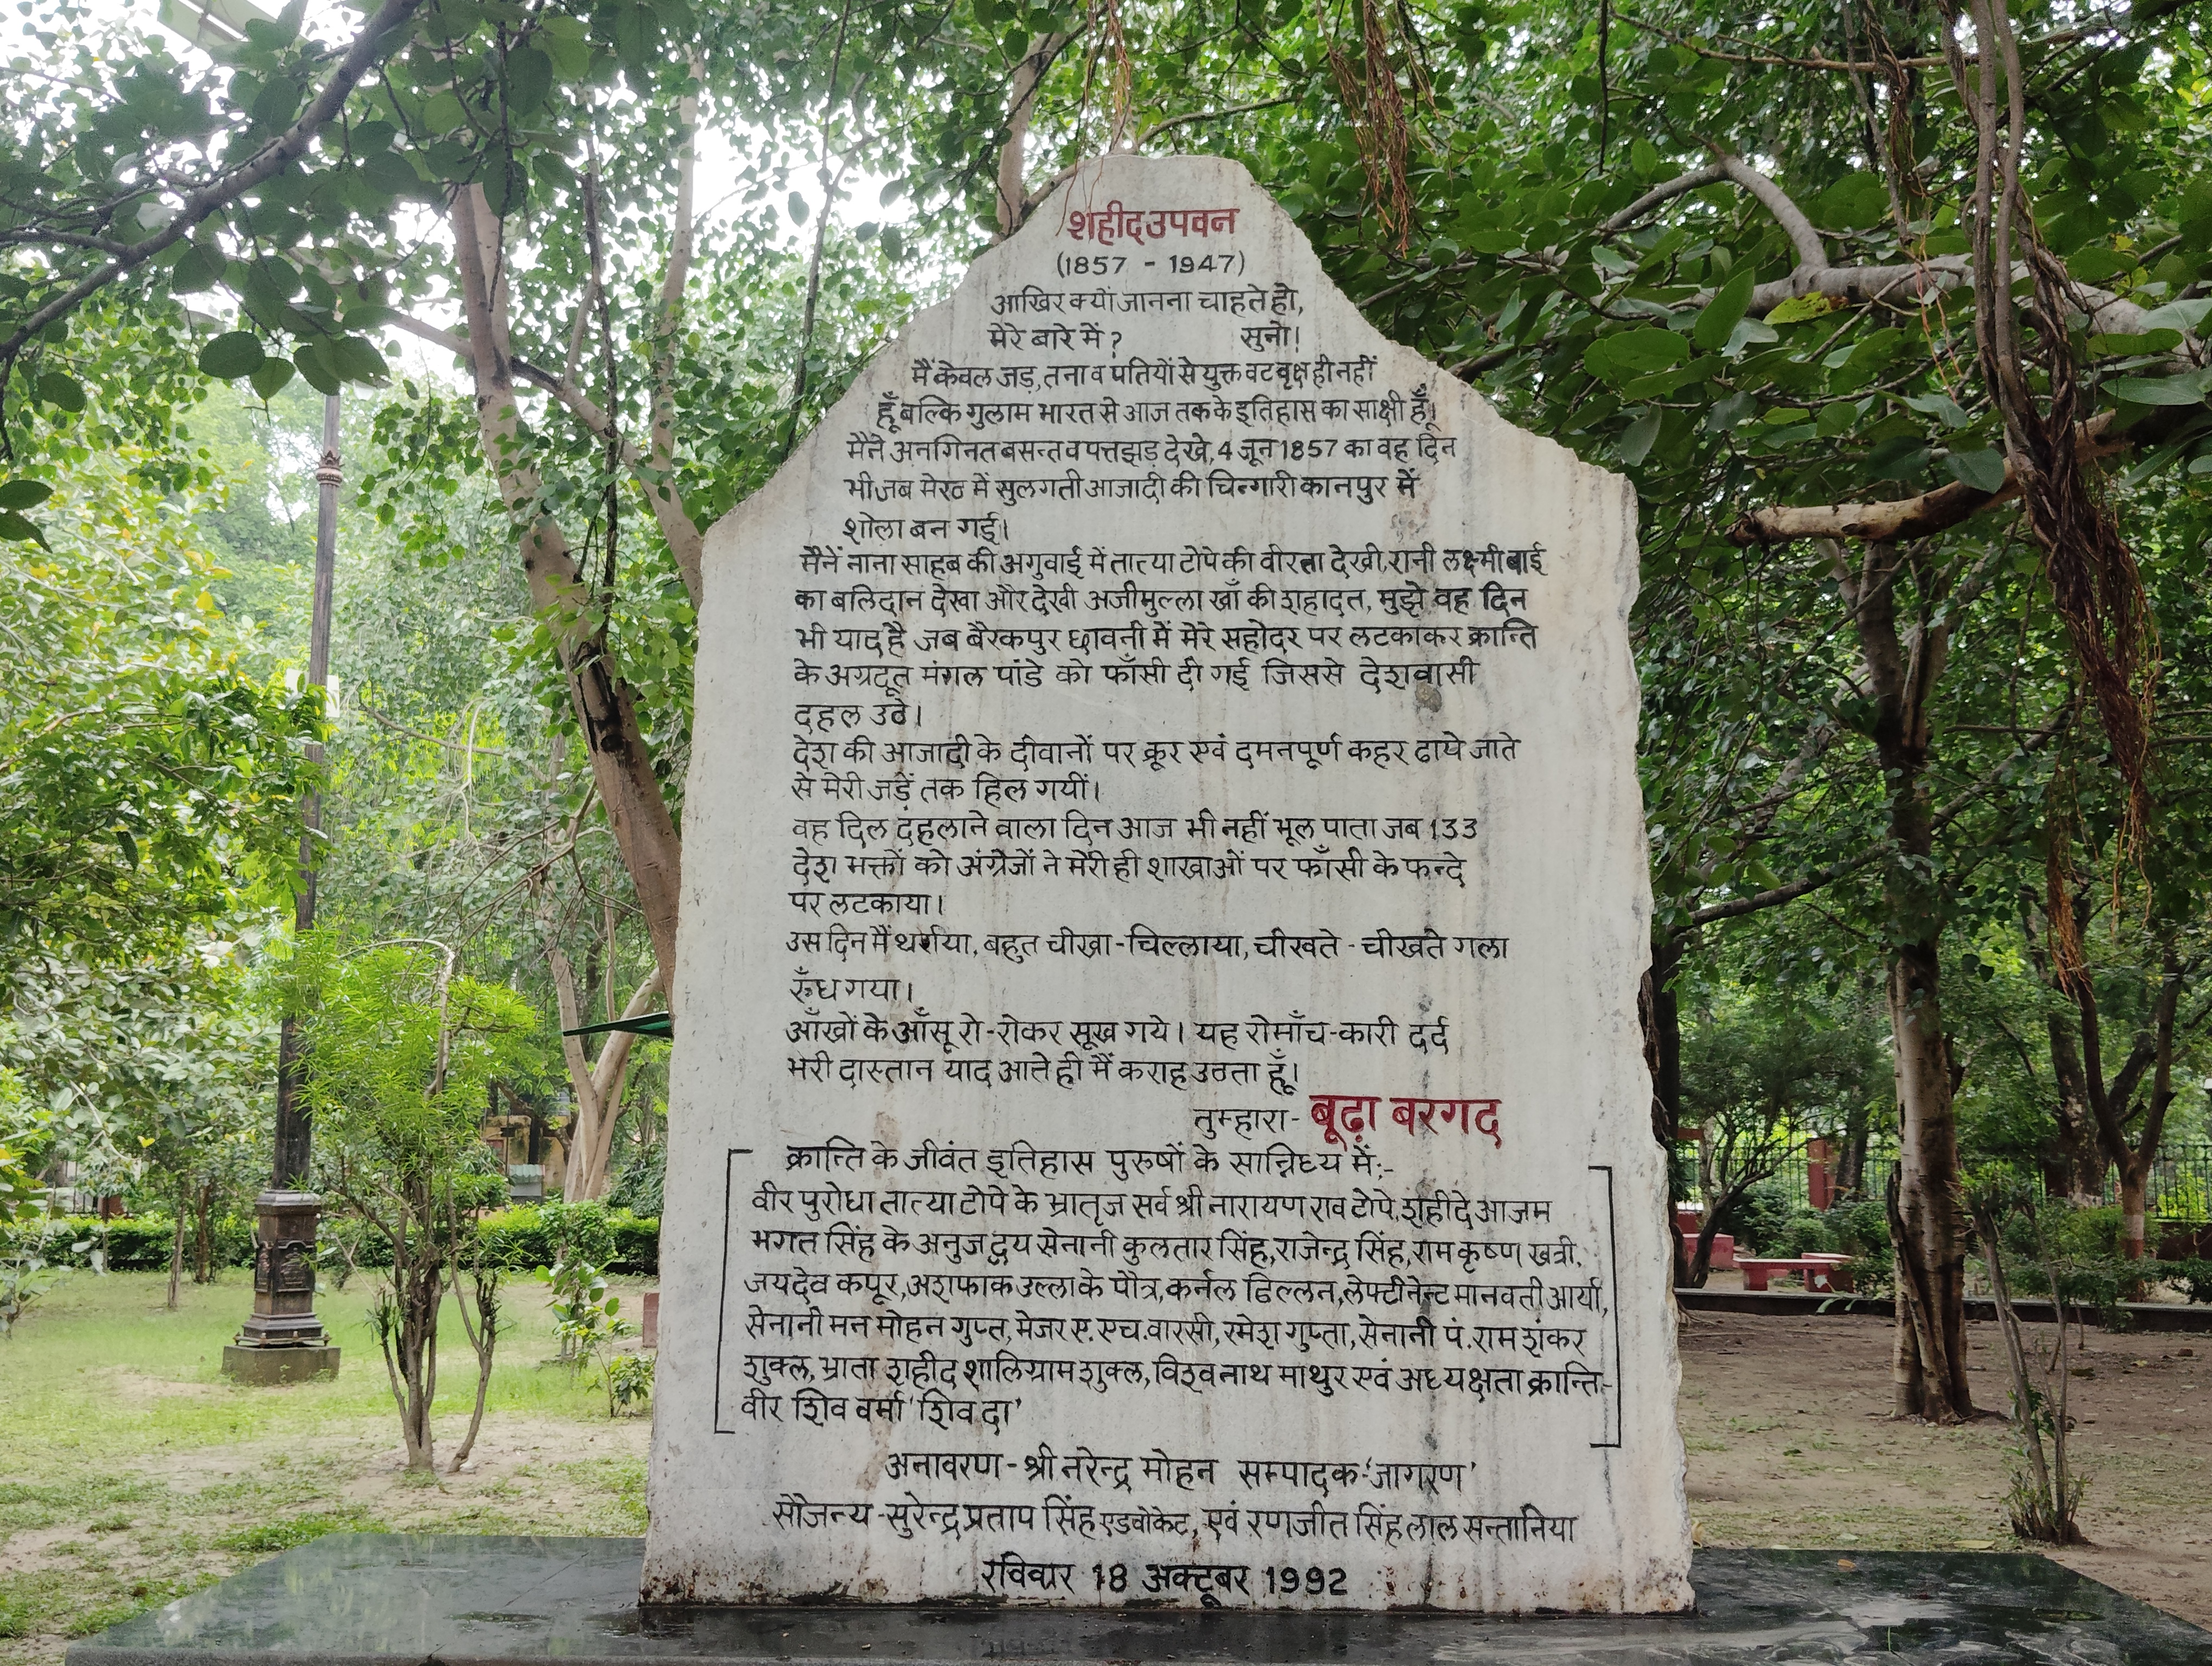 शहीद उपवन
(1857 - 1947)
आखिर क्यों जानना चाहते हो,
मेरे बारे में? सुनो।
मैं केवल जड़, तना व पतियों से युक्त वट वृक्ष ही नहीं
हूँ बल्कि गुलाम भारत से आज तक के इतिहास का साक्षी हूँ।
मैने अनगिनत बसन्त व पत्तझड़ देखे, 4 जून 1857 का वह दिन
भी जब मेरठ में सुलगती आजादी की चिन्गारी कानपुर में
शोला बन गई।
मैनें नाना साहब की अगुवाई में तात्या टोपे की वीरता देखी, रानी लक्ष्मी बाई
का बलिदान देखा और देखी अजीमुल्ला खाँ की शहादत, मुझे वह दिन
भी याद है जब बैरकपुर छावनी में मेरे सहोदर पर लटकाकर क्रान्ति
के अग्रदूत मंगल पांडे को फाँसी दी गई जिससे देशवासी
दहल उठे।
देश की आजादी के दीवानों पर क्रूर एवं दमनपूर्ण कहर ढाये जाते
से मेरी जड़ें तक हिल गयीं।
वह दिल दहलाने वाला दिन आज भी नहीं भूल पाता जब 133
देश भक्तों को अंग्रेजों ने मेरी ही शाखाओं पर फाँसी के फन्दे
पर लटकाया।
उस दिन मैं थर्राया, बहुत चीखा-चिल्लाया, चीखते - चीखते गला
रुँध गया।
आँखों के आँसू रो-रोकर सूख गये। यह रोमाँच-कारी दर्द
भरी दास्तान याद आते ही मैं कराह उठता हूँ।
तुम्हारा- बूढ़ा बरगद
क्रान्ति के जीवंत इतिहास पुरुषों के सान्निध्य में:-
वीर पुरोधा तात्या टोपे के भ्रातृज सर्व श्री नारायण राव टोपे, शहीदे आजम
भगत सिंह के अनुज द्वय सेनानी कुलतार सिंह, राजेन्द्र सिंह, राम कृष्ण खत्री,
जयदेव कपूर, अशफाक उल्ला के पौत्र, कर्नल ढिल्लन, लेफ्टीनेन्ट मानवती आर्या,
सेनानी मन मोहन गुप्त, मेजर ए. एच. वारसी, रमेश गुप्ता, सेनानी पं. राम शंकर
शुक्ल, भ्राता शहीद शालिग्राम शुक्ल, विश्वनाथ माथुर एवं अध्यक्षता क्रान्ति-
वीर शिव वर्मा 'शिव दा'
अनावरण - श्री नरेन्द्र मोहन सम्पादक-'जागरण'
सौजन्य - सुरेन्द्र प्रताप सिंह एडवोकेट, एवं रणजीत सिंह लाल सन्तानिया
रविवार 18 अक्टूबर 1992